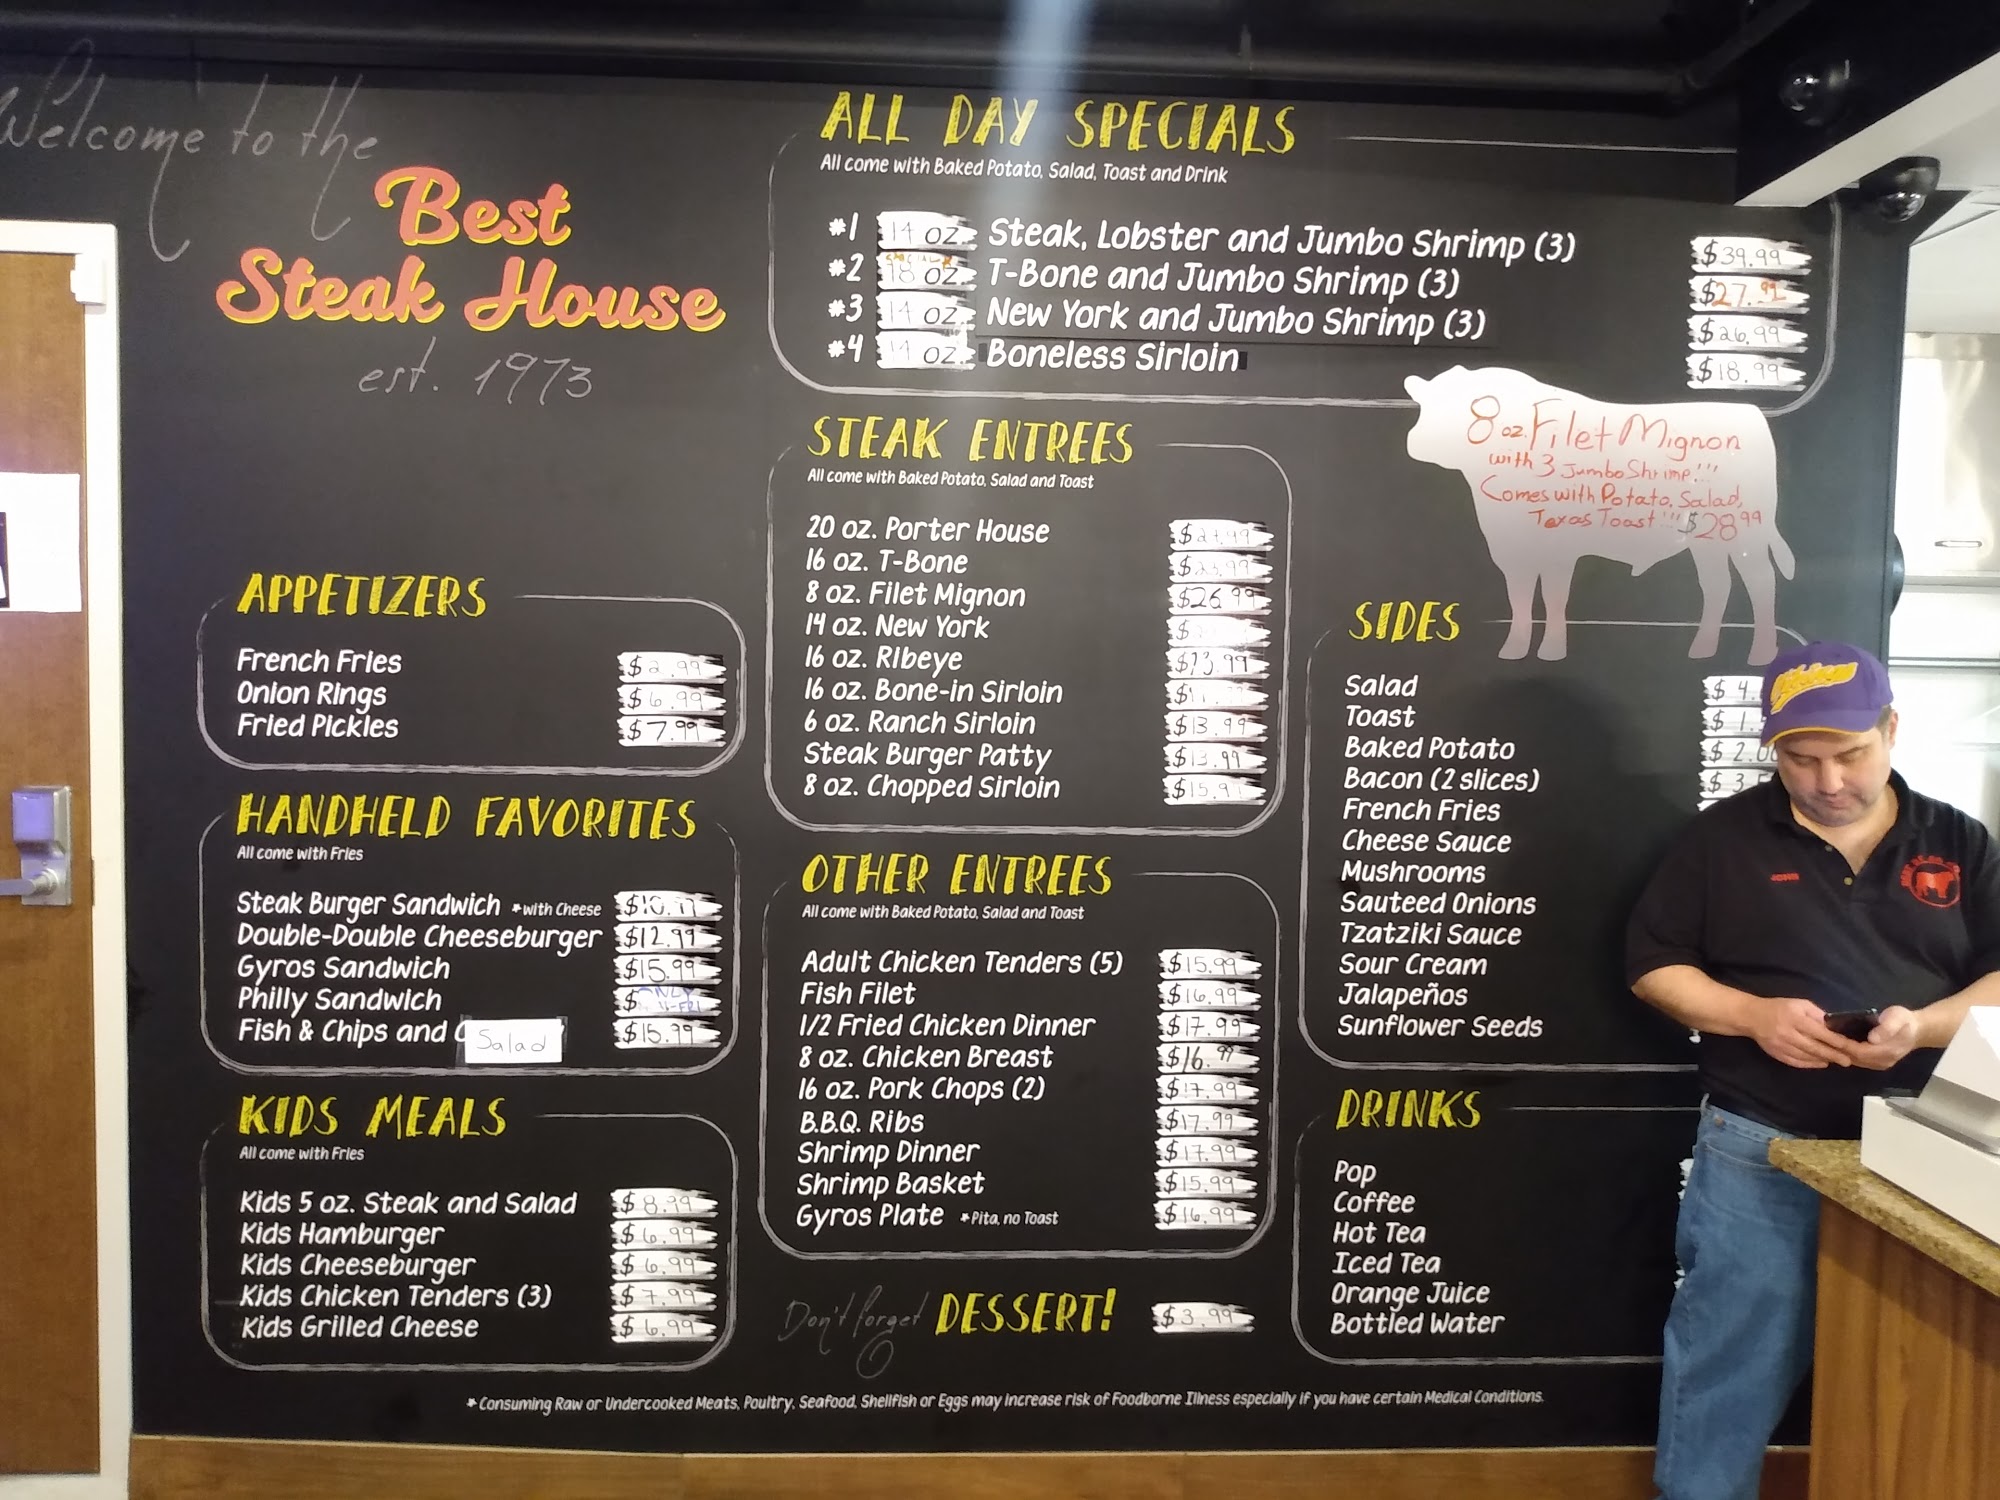 Welcome to the
Best
Steak House
est. 1973
ALL DAY SPECIALS
All come with Baked Potato, Salad, Toast and Drink
#1 14 oz. Steak, Lobster and Jumbo Shrimp (3) $39.99
#2 18 oz. T-Bone and Jumbo Shrimp (3) $27.99
#3 14 oz. New York and Jumbo Shrimp (3) $26.99
#4 14 oz. Boneless Sirloin $18.99
8 oz. Filet Mignon
with 3 Jumbo Shrimp!!!
Comes with Potato, Salad,
Texas Toast!!! $28.99
STEAK ENTREES
All come with Baked Potato, Salad and Toast
20 oz. Porter House
16 oz. T-Bone
8 oz. Filet Mignon $26.99
14 oz. New York $
16 oz. Ribeye
16 oz. Bone-in Sirloin
6 oz. Ranch Sirloin $13.99
Steak Burger Patty $13.99
8 oz. Chopped Sirloin $15.99
APPETIZERS
French Fries $2.99
Onion Rings $6.99
Fried Pickles $7.99
HANDHELD FAVORITES
All come with Fries
Steak Burger Sandwich *with Cheese $10.99
Double-Double Cheeseburger $12.99
Gyros Sandwich $15.99
Philly Sandwich $
Fish & Chips and Salad $15.99
KIDS MEALS
All come with Fries
Kids 5 oz. Steak and Salad $8.99
Kids Hamburger $6.99
Kids Cheeseburger $6.99
Kids Chicken Tenders (3) $7.99
Kids Grilled Cheese $6.99
OTHER ENTREES
All come with Baked Potato, Salad and Toast
Adult Chicken Tenders (5) $15.99
Fish Filet $16.99
1/2 Fried Chicken Dinner $17.99
8 oz. Chicken Breast $16.99
16 oz. Pork Chops (2) $17.99
B.B.Q. Ribs $17.99
Shrimp Dinner $17.99
Shrimp Basket $15.99
Gyros Plate *Pita, no Toast $16.99
Don't forget DESSERT! $3.99
SIDES
Salad $4.
Toast $1.
Baked Potato $2.00
Bacon (2 slices) $3.
French Fries
Cheese Sauce
Mushrooms
Sauteed Onions
Tzatziki Sauce
Sour Cream
Jalapeños
Sunflower Seeds
DRINKS
Pop
Coffee
Hot Tea
Iced Tea
Orange Juice
Bottled Water
*Consuming Raw or Undercooked Meats, Poultry, Seafood, Shellfish or Eggs may increase risk of Foodborne Illness especially if you have certain Medical Conditions.